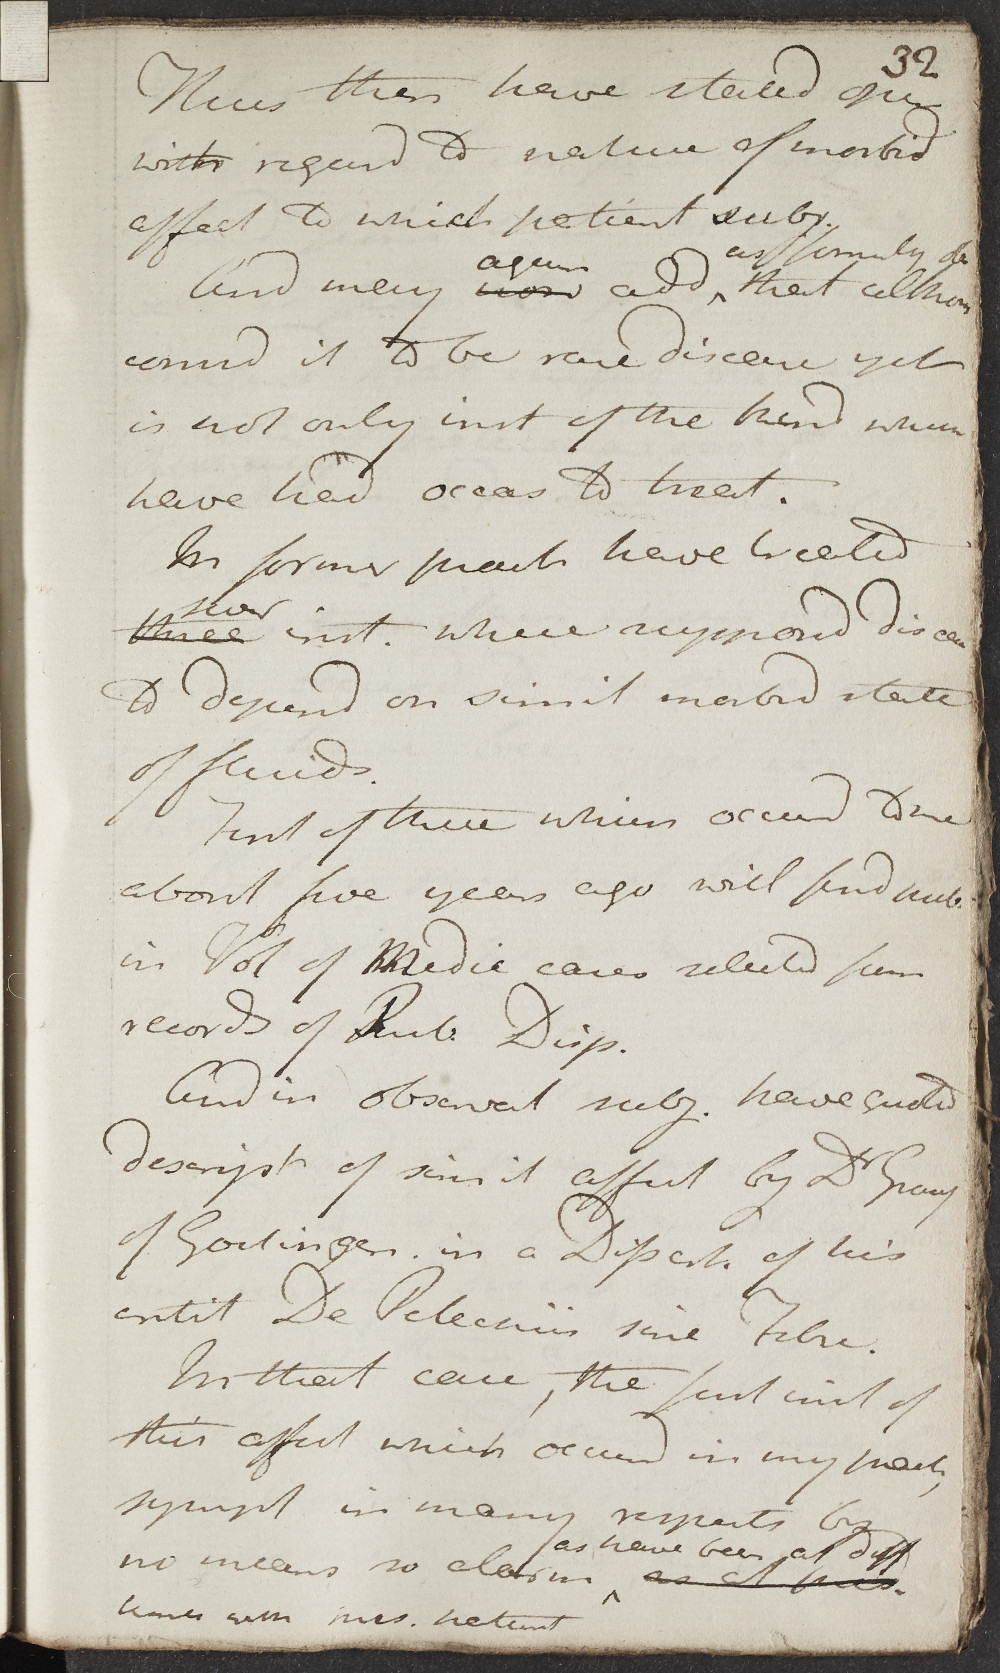 32
Thus then have stated opin
with regard to nature of morbid
affect to which patient subj.
as formerly de
again
And may now add, that althou
consid it to be rare disease yet
is not only inst of the kind whic
have had occas to treat.
In former pract have treated
sever
three inst. where suppos'd diseas
to depend on simil morbid state
of fluids.
First of these which occurd to me
about five years ago will find pub.
in Vol of Medic cases selected from
records of Pub. Disp.
And in observat subj. have quoted
descript of simil affect by Dr
of Goetingen. in a Dissert. of his
entit De Petechiis sine Febre.
In that case, the first inst of
this affect which occurd in my pract,
sympt in many respects by
as have been at diff
no means so alarm as at pres.
times with pres. patient